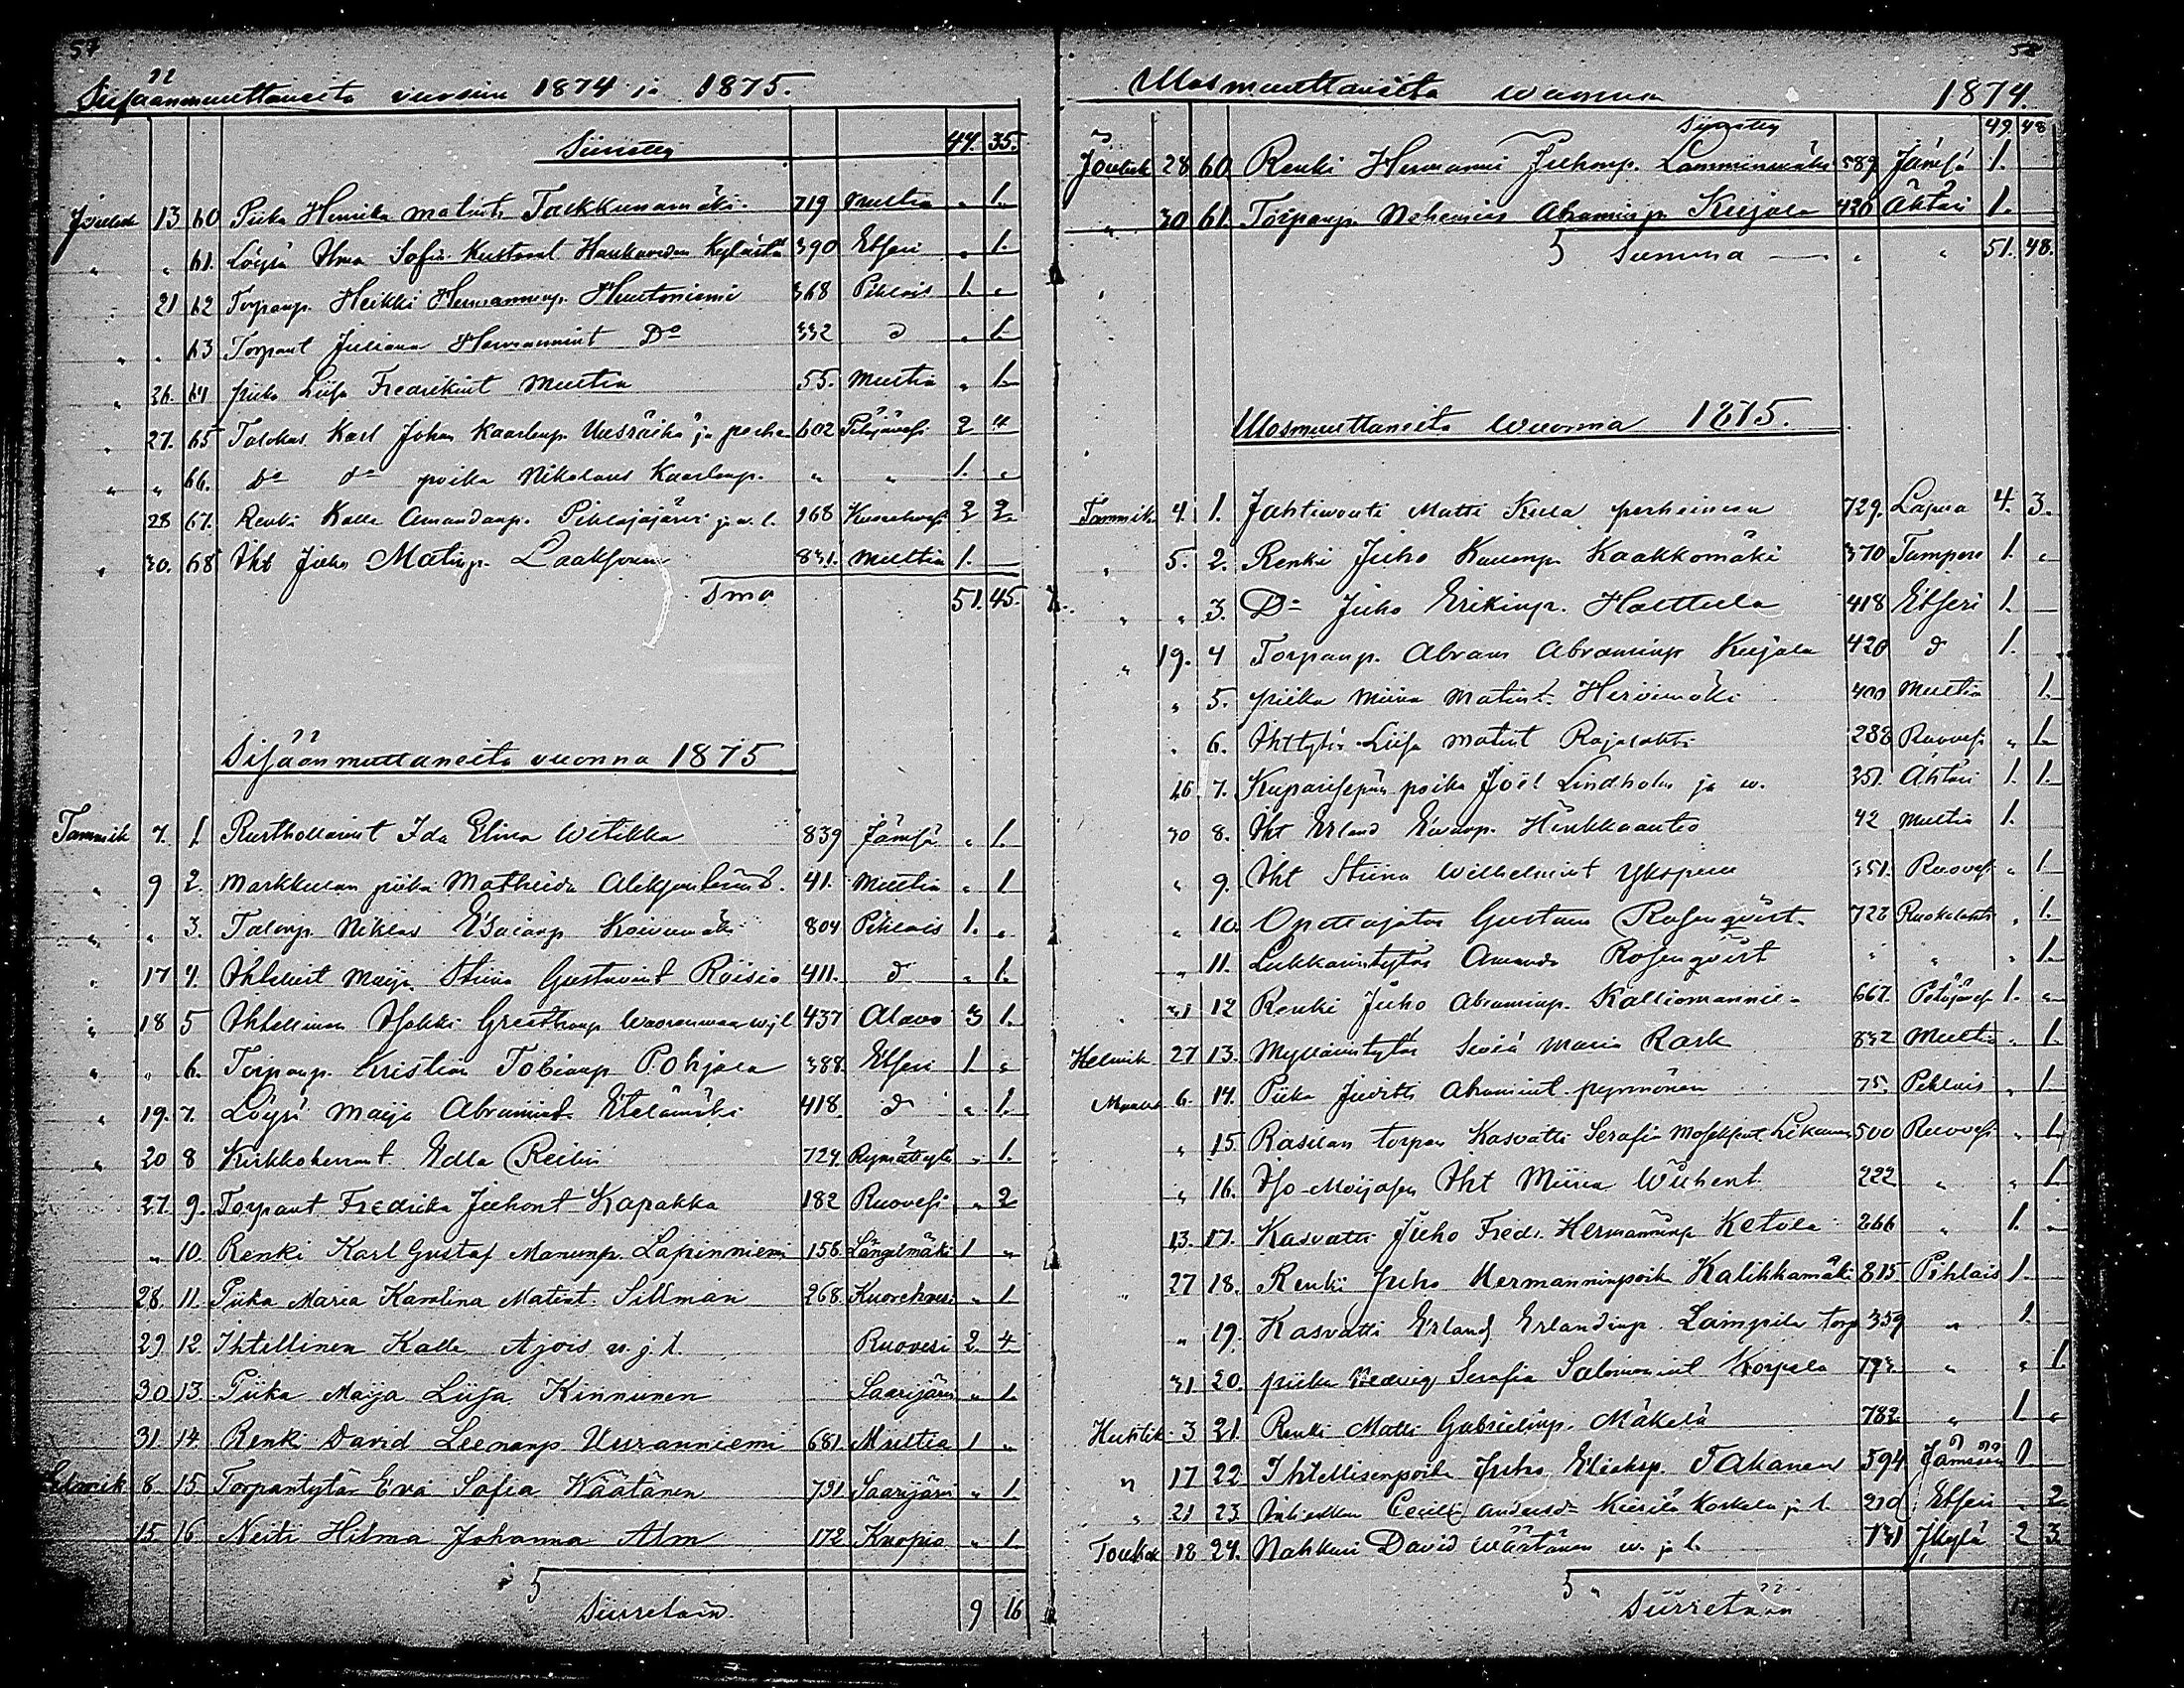 57
Sisäänmuuttaneita vuosina 1874 ja 1875.
Siirretty 44. 35.
Jouluk 13 60 Piika Henrika Matint. Takkunamäki 719 Multia " 1.
" " 61. Löysä Ilma Sofia Kustaant Haukanden Kylästä 390 Etseri " 1.
21 62 Torpanp. Heikki Hermanninp. Huutoniemi 368 Pihlais 1. "
" " 63 Torpant Juliana Hermannint Do 332 d " 1.
" 26. 64 piika Liisa Fredrikint Multia 55. Multia " 1.
" 27. 65 Talokas Karl Johan Kaarlenp. ja perhe 602 Pihlajavesi 2 4
" " 66. Do do poika Nikolaus Kaarlenp. " " 1. "
28 67. Renki Kalle Amandanp. Pihlajajärvi ja w. l. 168 2 2
" 30. 68 Iht Juho Matinp. Laaksonen 831. Multia 1.
Sma 51. 45.
Sisäänmuttaneita vuonna 1875
Tammik 7. 1. Rusthollarint Ida Elina Wetikka 839 Jämsä " 1.
" 9 2. Markkulan piika Mathilda 41. Multia " 1
" " 3. Taloinp. Niklas Esaianp Koivumäki 804 Pihlais 1. "
" 17 4. Ihtelint Maija Stiina Gustavint Röisiö 411. d " 1.
" 18 5 Ihtellinen Iisakki w j l 437 Alavo 3 1.
" " 6. Torpanp. Kristian Tobianp Pohjola 388. Etseri 1 "
" 19. 7. Löysä Maija Abramint Etelämäki 418. d " 1.
" 20 8 Kirkkoherrant. Edla Reilin 724. Rymättylä " 1.
27. 9. Torpant Fredrika Juhont Kapakka 182 Ruovesi " 2
" 10. Renki Karl Gustaf Manunp. Lapinniemi 158. Längelmäki 1 "
28. 11. Piika Maria Karolina Matint. Sillman 268. Kuorehvesi " 1
29 12. Ihtellinen Kalle Ajois w. j. l. Ruovesi 2. 4
30 13. Piika Maija Liisa Kinnunen Saarijärvi " 1.
31. 14. Renk David Leenanp Uuranniemi 681. Multia 1 "
Helmik 8. 15. Torpantytär Eva Sofia Wäätänen 731 Saarijärvi " 1.
15 16 Neiti Hilma Johanna Alm 172 Kuopio " 1.
Siirretään 9 16
58
Ulosmuuttaneita wuonna 1874.
Siirretty 49. 48
Jouluk 28 60 Renki Hermanni Juhonp. Lamminmäki 589 Jämsä 1.
" 30 61. Torpanp. Nehemias Abraminp. Kujala 420 Ähtäri 1.
Summa " " 51. 48.
Ulosmuuttaneita wuonna 1875.
Tammik. 4. 1. Jahtivouti Matti Kula perheinensa 729. Lapua 4. 3.
" 5. 2. Renki Juho Kaakkomäki 370 Tampere 1. "
" " 3. Do Juho Erikinp. Holttula 418 Etseri 1.
" 19. 4 Torpanp. Abram Abraminp Kujala 420 d 1.
" 5. piika Miina Matint. Hervimäki 400 Multia 1.
" 6. Iht tytär Liisa Matint Rajalahti 288 Ruovesi " 1.
26. 7. Kuparisepän poika Joël Lindholm ja w. 251. Ähtäri 1. 1.
30 8. Iht Erland Hirikkaautio 42 Multia 1.
" 9. Iht Stiina Wilhelmint Ykspuu 351. Ruovesi " 1.
" 10. Opettajatar Gustava Rosenqvist 728 Ruokolahti " 1.
" 11. Lukkarintytär Amanda Rosenqvist " " " 1.
31 12 Renki Juho Abraminp. 667. Pihlajavesi 1. "
Helmik 27 13. Myllärintytär Maria Rask 832 Multia " 1.
Maalisk 6. 14. Piika Juditti Abramint. pynnönen 75. Pihlais " 1.
" 15. torpan Kasvatti Serafia 500 Ruovesi " 1.
" 16. Iso-Moijasen Iht Miina 222 " " 1.
13. 17. Kasvatti Juho Fredr. Hermanninp Ketola 266 " 1. "
" 27 18. Renki Juho Hermanninpoik Kalikkamäki 815 Pihlais 1.
" 19. Kasvatti Erland Erlandinp. Lampila torp 359 " 1.
31 20. piika Hedvig Serafia Salomonint Korpela 793. " " 1.
Huhtik 3 21. Renki Matti Gabrielinp. Mäkelä 782. " 1. "
" 17 22 Ihtellisenpoika Juho Eliaksp. Takanen 594 Jämsään 1.
" 21 23. Cecilia ja l. 210 Etseri " 2
Toukok 18 24. Nahkuri David Wäätänen w. ja l. 731 Jkylä 2 3.
Siirretään